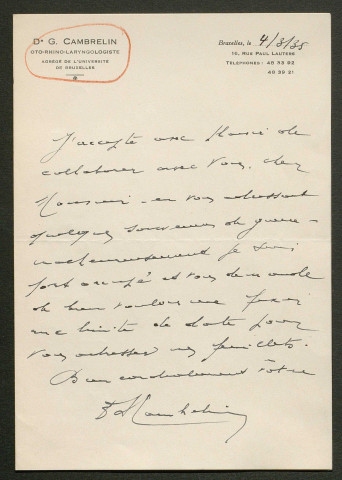 Dr G. CAMBRELIN
OTO-RHINO-LARYNGOLOGISTE
AGRÉGÉ DE L'UNIVERSITÉ
DE BRUXELLES
Bruxelles, le 4/3/35
16, RUE PAUL LAUTERS
TÉLÉPHONES : 48 39 92
48 39 21
J'accepte avec plaisir de
collaborer avec vous, cher
Monsieur - en vous adressant
quelques souvenirs de guerre -
malheureusement je suis
fort occupé et vous demande
de bien vouloir me fixer
une limite de date pour
vous adresser mes feuillets.
Bien cordialement vôtre
Dr G Cambrelin